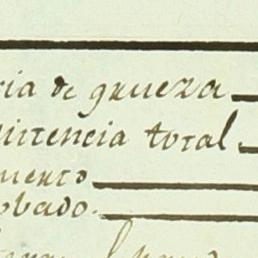 cia de grueza
istencia total
mento
obado.